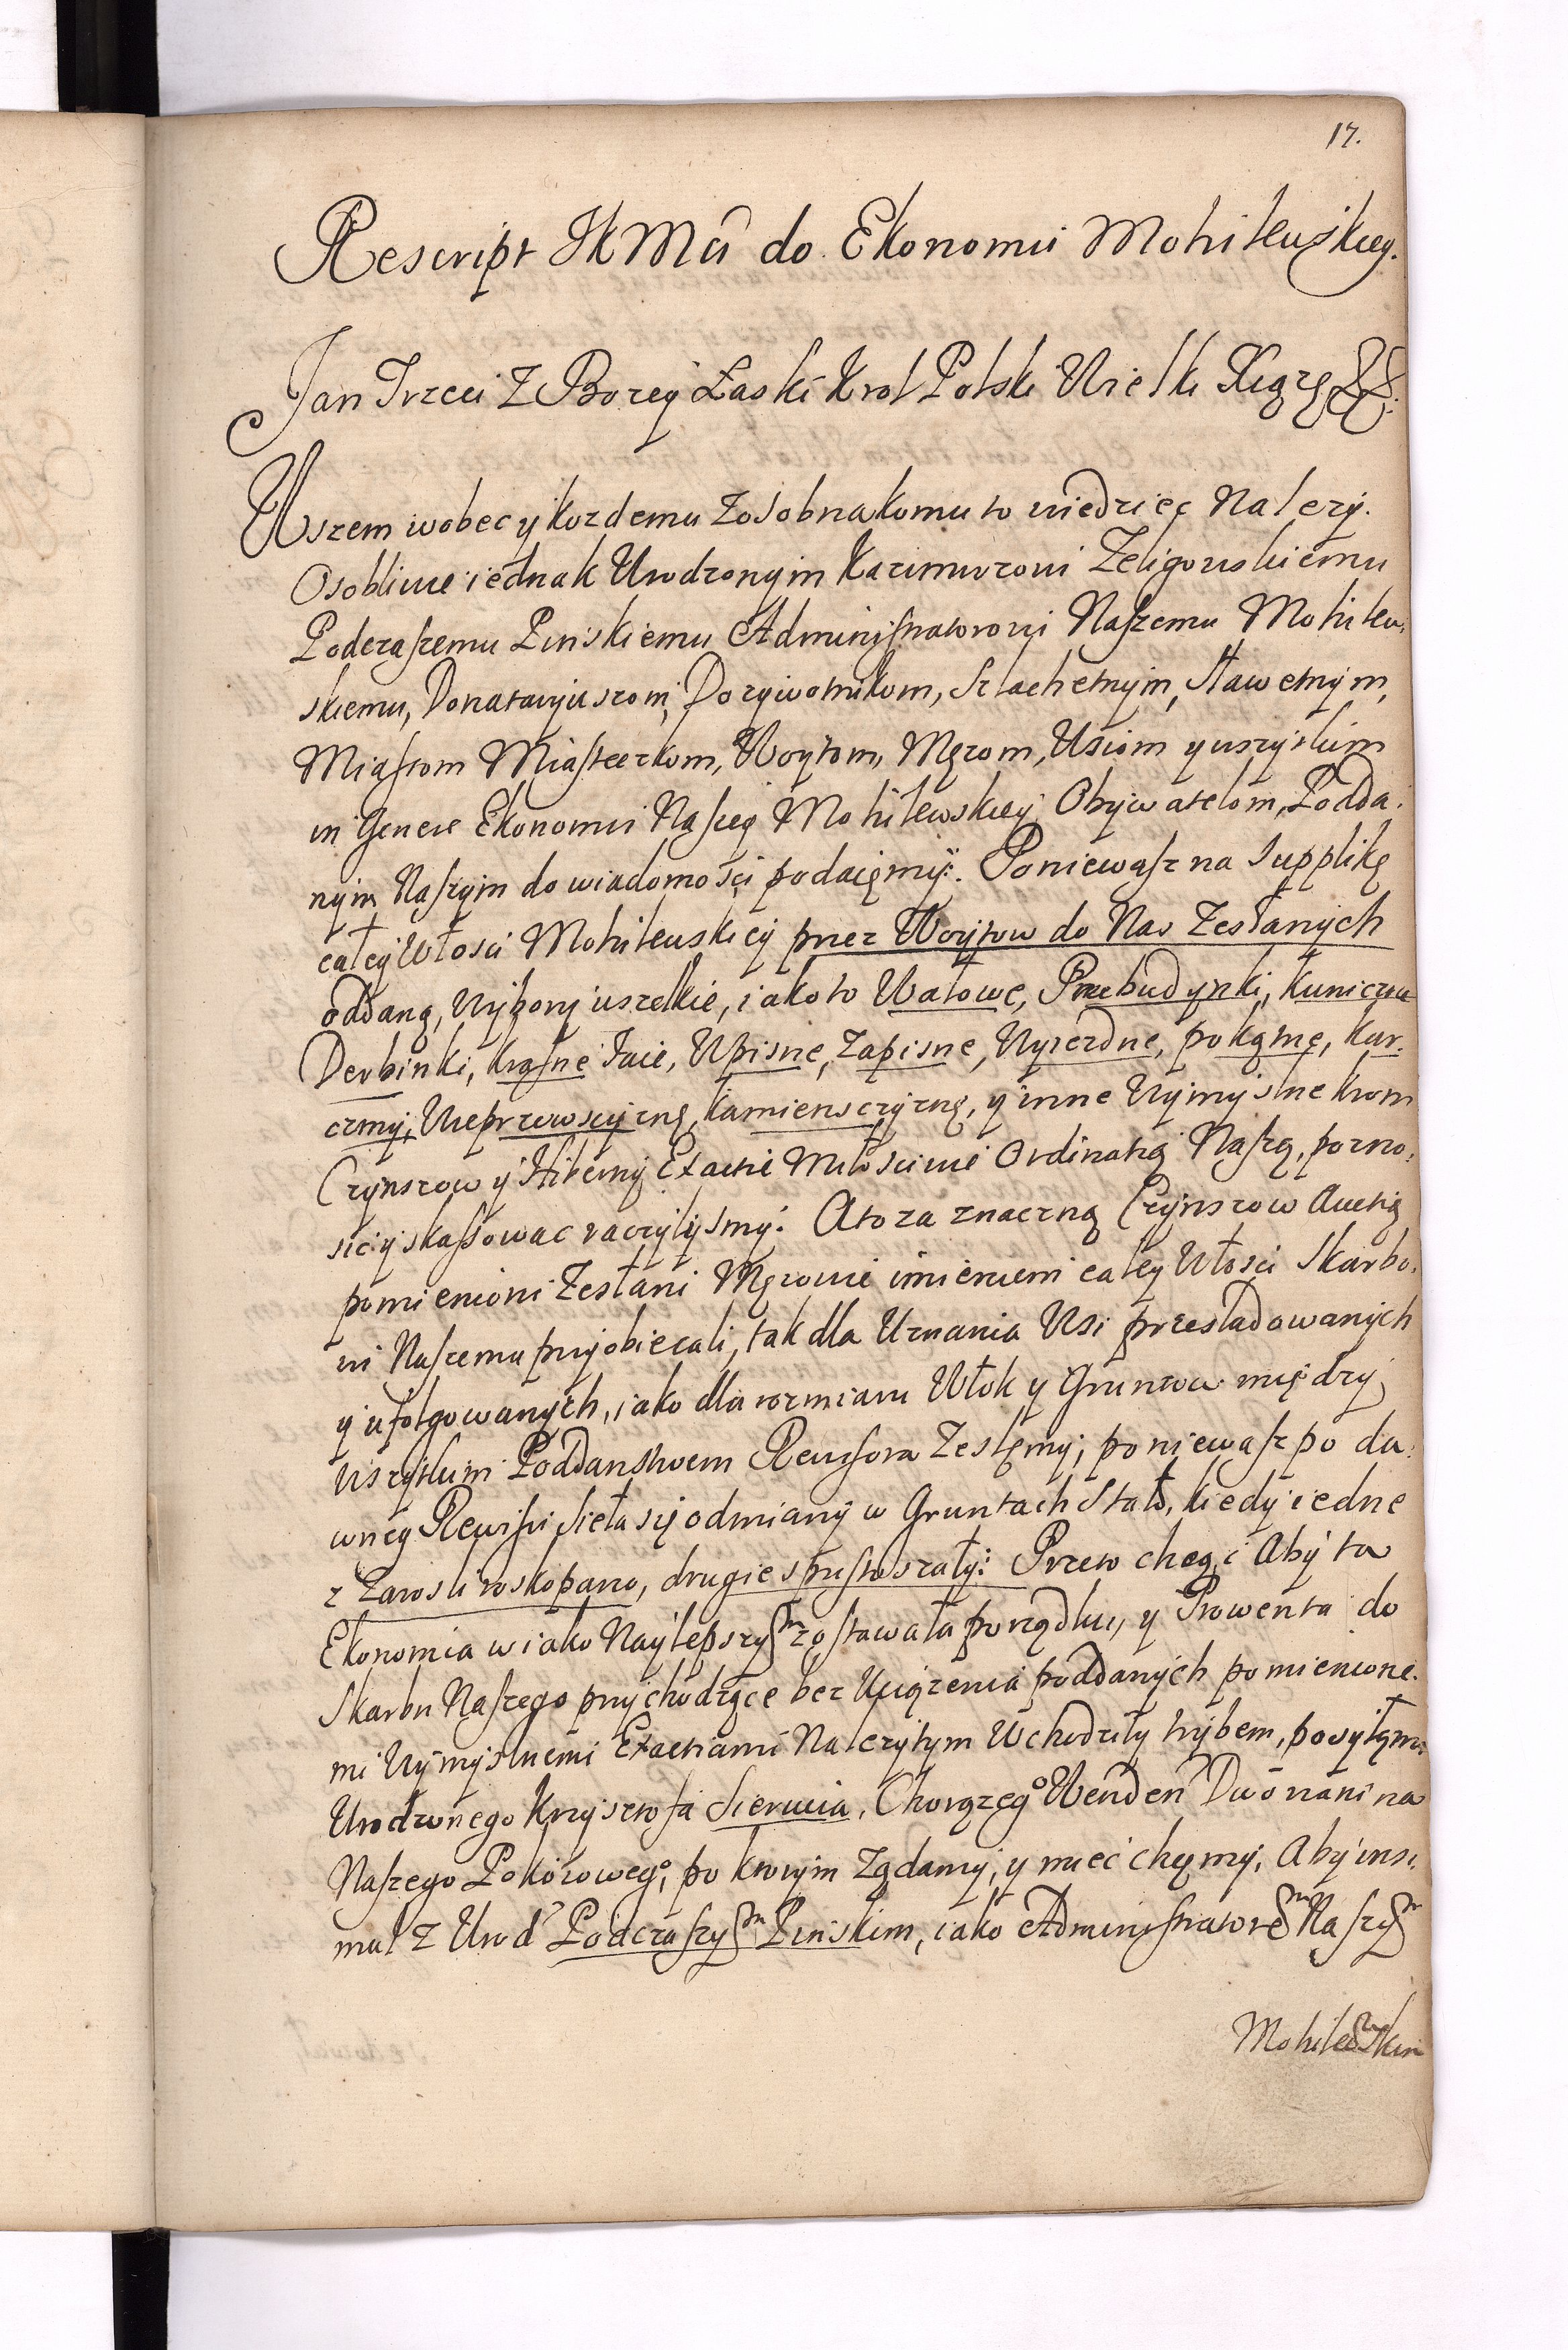 17.
Rescript JKMći do Ekonomii Mohilewskiey.
Jan Trzeci Z Bozey Łaski Krol Polski Wielki Xiąże &&.
Wszem wobec y kozdemu Zosobna komu to wiedziec Nalezy.
Osobliwie iednak Urodzonym Kazimierzowi Zeligowskiemu
Podczaszemu Pinskiemu Administratorowi Naszemu Mohilew,
skiemu, Donataryuszom, Dozywotnikom, Szlachetnym, Sławetnym,
Miastom Miasteczkom, Woytom, Mężom, Wsiom y wszystkim
in Genere Ekonomii Naszey Mohilewskiey Obywatelom, Podda,
nym Naszym do wiadomośći podaięmy: Ponieważ na Supplikę
całey Włosci Mohilewskiey przez Woytow do Nas Zesłanych
oddaną, Wybory wszelkie, iako to Wałowe, Przebudynki, kunicze
Derbinki, krasne Jaie, Wpisne, Zapisne, Wyiezdne, pokątne, kar,
czmy, Wieprzowsczyznę, kamiensczyznę, y inne Wymyslne krom
Czynszow y Hiberny Exactie Miłosciwie Ordinatią Naszą, pozno,
sic y skassowac raczylysmy: A to za znaczną Czynszow Auctią
pomienioni Zesłani Mężowie imieniem całey Włosci Skarbo,
wi Naszemu przyobiecali, tak dla Uznania Wsi przesladowanych
y ufolgowanych, iako dla rozmiaru Włok y Gruntow między
wszystkim Poddanstwem Rewisora Zeslęmy, poniewasz po da,
wney Rewisii Siełasię odmiany w Gruntach Stało, kiedy iedne
z Zarosli roskopano, drugie spustoszały: Przeto chcąc Aby ta
Ekonomia w iako Naylepszym zostawała porządku, y Prowenta do
Skarbu Naszego przychodzące bez Uciążenia poddanych pomienione,
mi Wymyslnemi Exactiami Nalezytym Wchodziły trybem, posyłamy
Urodzonego Krzysztofa Sierucia, Chorążego Wenden Dworanina
Naszego Pokoiowego, po ktorym Ządamy, y miec chcęmy, Aby insi,
mul z Urod Podczaszym Pinskim, iako Administratorem Naszym
Mohilewskim